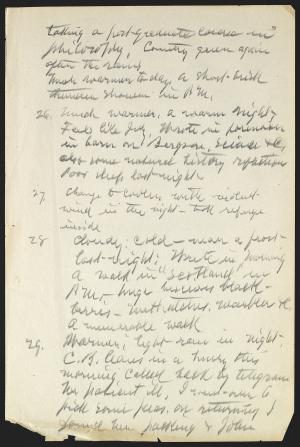 taking a post-graduate course in
philosophy. Country green again
after the rains
Much warmer to-day, a short brisk
thunder shower in P.M.
26. Much warmer, a warm night,
Feel like July, Wrote in forenoon
in barn on Bergson, Science &c,
also some natural history question
Poor sleep last night
27 change to cooler, with violent
wind in the night - took refuge
inside
28 Cloudy: Cold - near a frost
last night; Wrote in morning
a walk in "Scotland" in
P.M. - huge luscious black-
berries - nut-hatches, warbler &c,
A memorable walk
29. Warmer, light rain in night.
C.B. leaves in a hurry this
morning called back by telegram
her patient ill, I went over to
pick some peas, on returning I
found her packing &